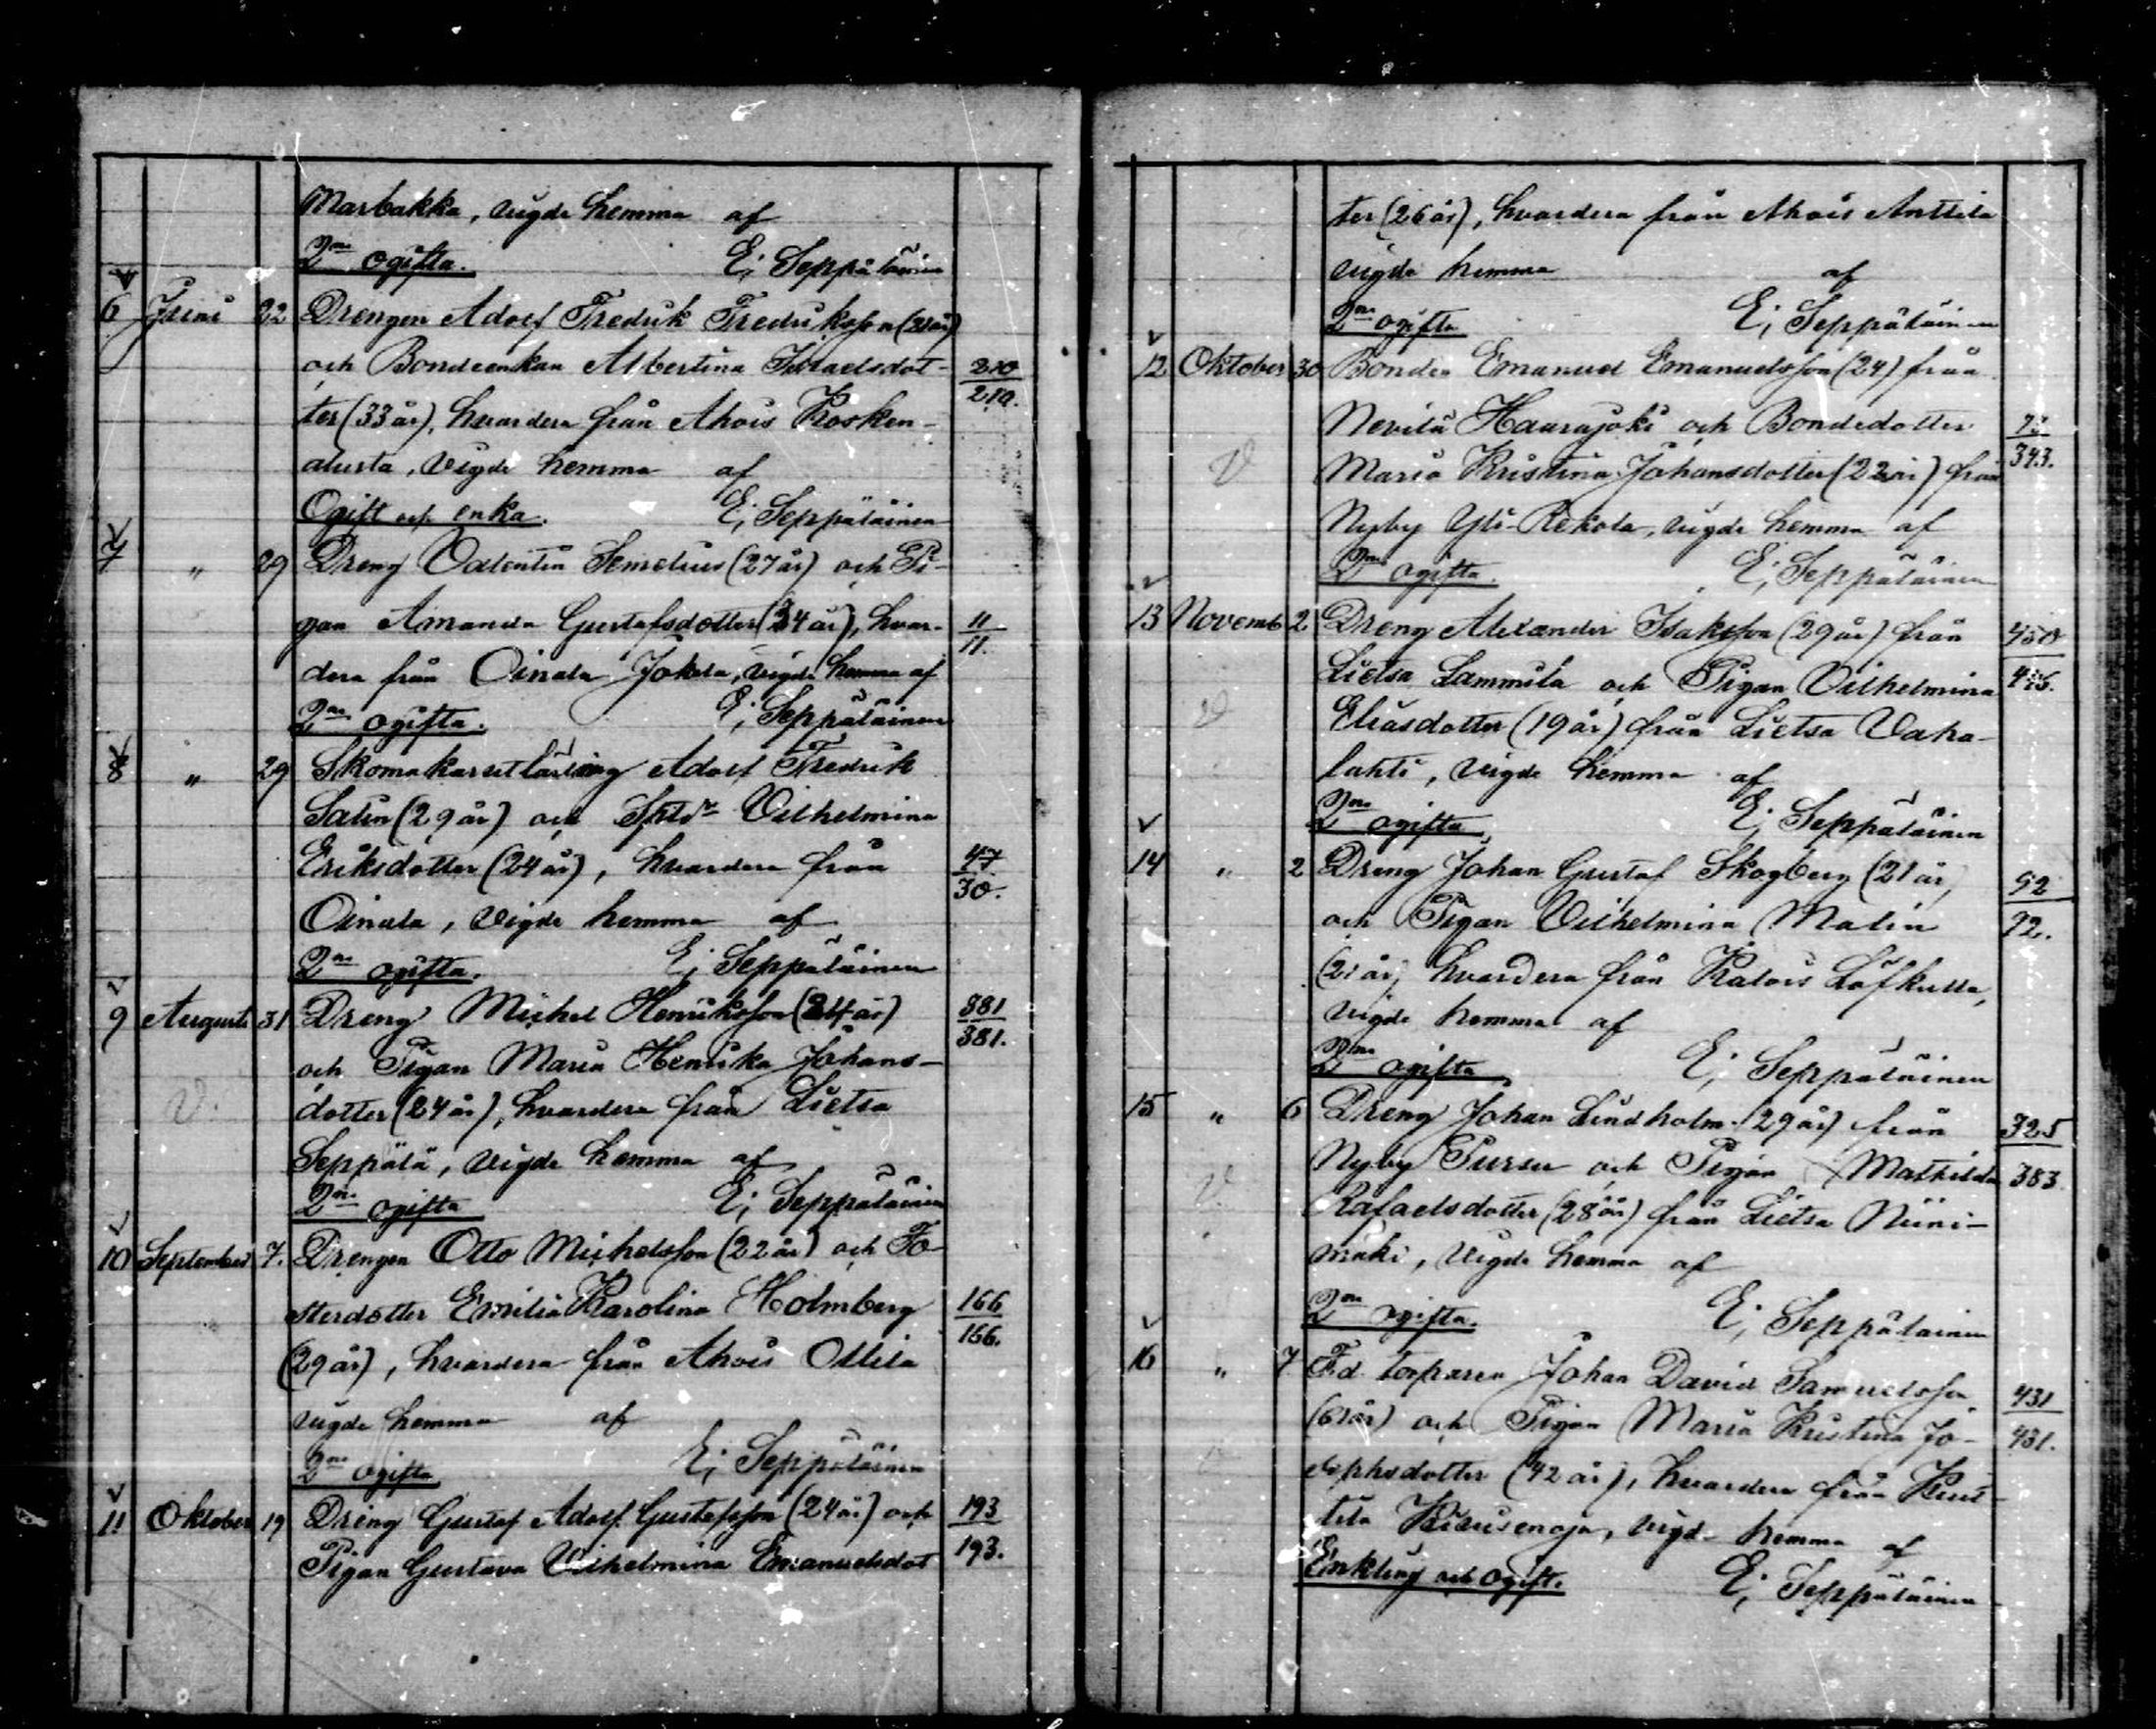 Marbakka, vigde hemma af
2ne ogifta. E; Seppäläinen
6 Juni 22 Drengen Adolf Fredrik Fredriksson (21 år)
och Bondeenkan Albertina Israelsdot- 210
ter (33 år), hvardera från Ahois Kosken- 210.
alusta, vigde hemma af
Ogift och enka. E; Seppäläinen
7 " 29 Dreng Valentin Semelius (27 år) och Pi-
gan Amanda Gustafsdotter (34 år), hvar- 11
dera från Oinala Jokela, vigde hemma af 11.
2ne ogifta. E; Seppäläinen
8 " 29 Adolf Fredrik
Salin (29 år) och Vilhelmina
Eriksdotter (24 år), hvardera från 47
Oinala, vigde hemma af 30.
2ne ogifta. E; Seppäläinen
9 Augusti 31 Dreng Michel Henriksson (24 år) 381
och Pigan Maria Henrika Johans- 381.
dotter (24 år), hvardera från Lietsa
Seppälä, vigde hemma af
2ne ogifta E; Seppäläinen
10 September 7. Drengen Otto Michelsson (22 år) och Fo-
sterdotter Emilia Karolina Holmberg 166
(29 år), hvardera från Ahois Ollila 166.
vigde hemma af
2ne ogifta E; Seppäläinen
11 Oktober 19 Dreng Gustaf Adolf Gustafsson (24 år) och 193
Pigan Gustava Vilhelmina Emanuelsdot 193.
ter (26 år), hvardera från Ahois Anttila
vigde hemma af
2ne ogifta E; Seppäläinen
12 Oktober 30 Bonden Emanuel Emanuelsson (24) från
Nevilä Haarajoki och Bondedotter
Maria Kristina Johansdotter (22 år) från 343.
Nyby Yli-Rekola, vigde hemma af
2ne ogifta. E; Seppäläinen
13 Novemb 2 Dreng Alexander Isaksson (29 år) från
Lietsa Lammila och Pigan Vilhelmina
Eliasdotter (19 år) från Lietsa Vaha-
lahti, vigde hemma af
2ne ogifta, E; Seppäläinen
14 " 2 Dreng Johan Gustaf Skogberg (21 år) 92
och Pigan Vilhelmina Malin 92.
(21 år) hvardera från Kalois Löfkulla,
vigde hemma af
2ne ogifta E; Seppäläinen
15 " 6 Dreng Johan Lindholm (29 år) från 325
Nyby Pursu och Pigan Mathilda 383
Rafaelsdotter (28 år) från Lietsa Niini-
mäki, vigde hemma af
2ne ogifta. E; Seppäläinen
16 " 7 F.d. torparen Johan David Samuelsson 431
(61 år) och Pigan Maria Kristina Jo- 431.
sephsdotter (42 år), hvardera från
vigde hemma af
Enkling och ogift. E; Seppäläinen